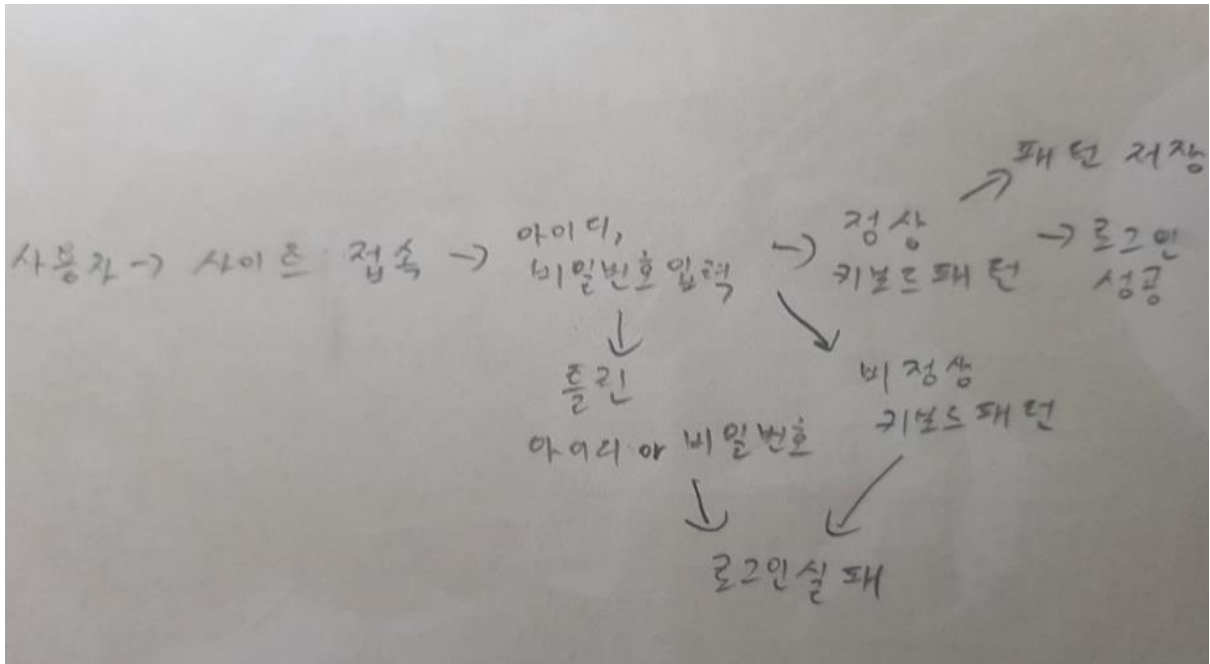 패턴 저장
사용자 → 사이트 접속 → 아이디,
비밀번호 입력 → 정상
키보드 패턴 → 로그인
성공
틀린
아이디 or 비밀번호
비정상
키보드 패턴
로그인 실패